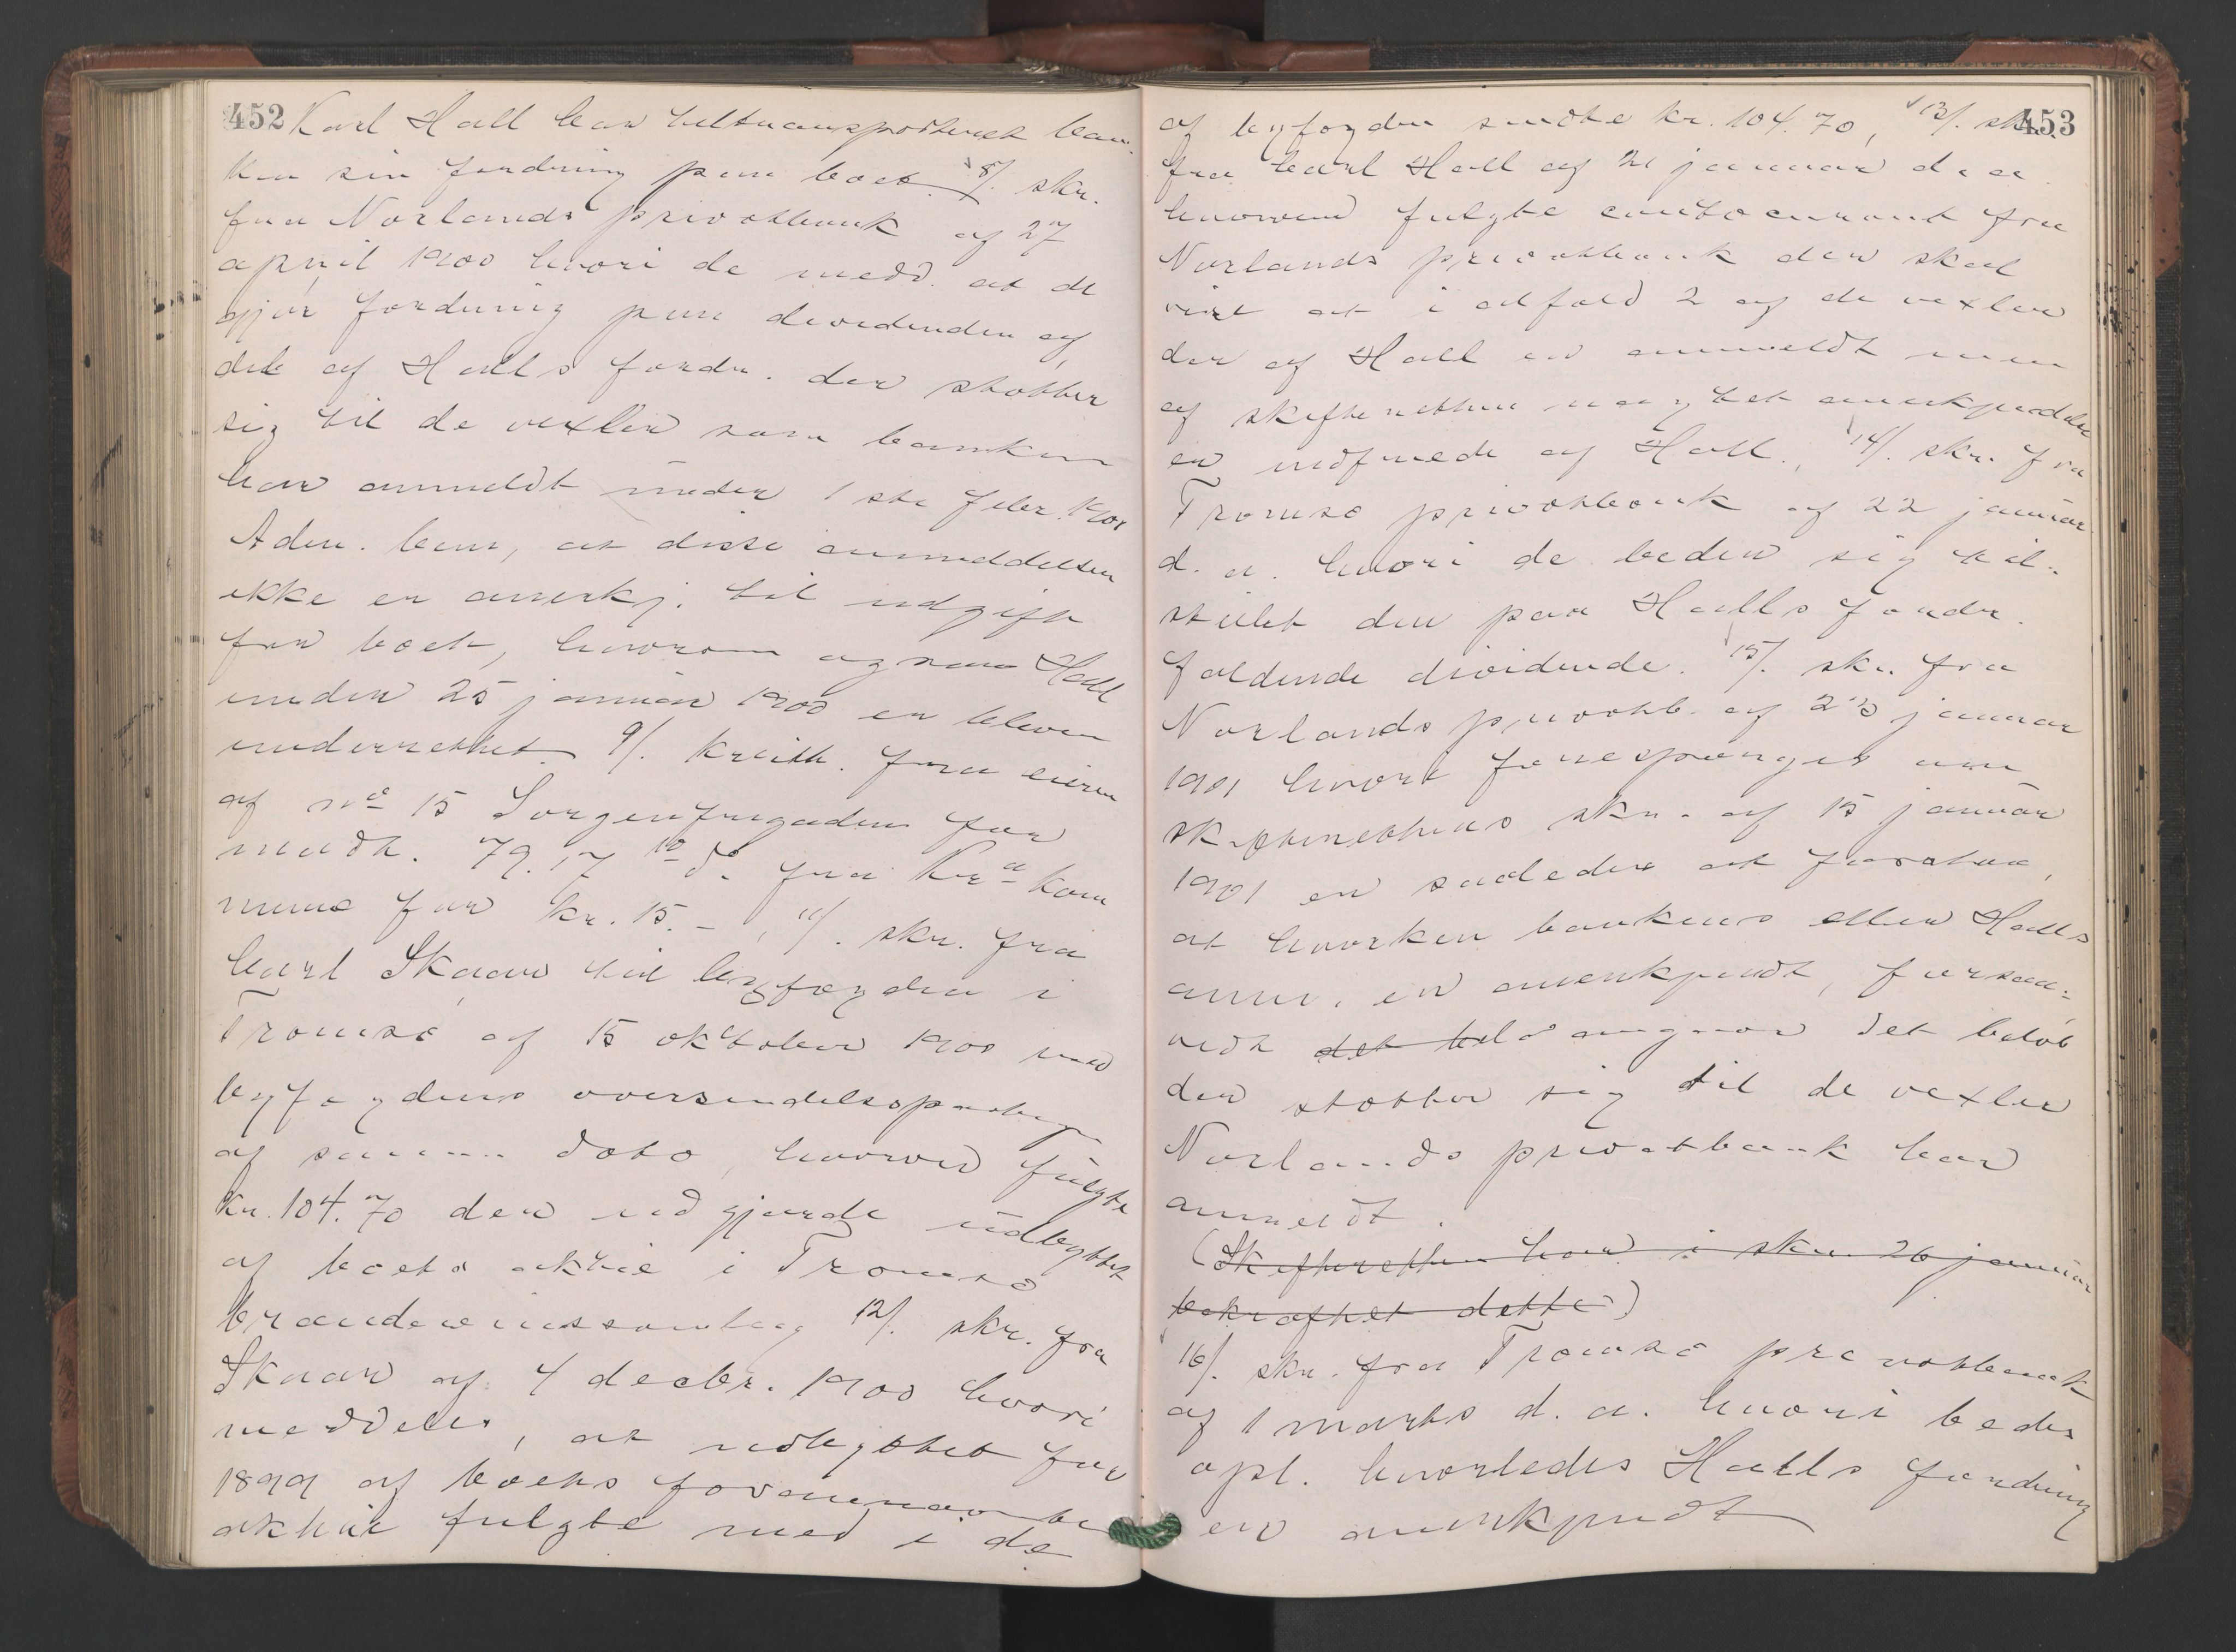 452
Karl Hall har tiltransporteret ban-
ken sin fordring paa boet. 8/. skr.
fra Norlands privatbank af 27
april 1900 hvori de medd. at de
gjør fordring paa dividenden af
del af Halls fordr. der støtter
sig til de vexler som banken
har anmeldt under 1ste febr. 1900
Adm. bem, at disse anmeldelser
ikke er anerkj. til udgift
for boet, hvorom ogsaa Hall
under 25 januar 1900 er bleven
underrettet. 9/. kvitt. fra eieren
af no 15 Sorgenfrigaden for
modt. 79.17 10 do. fra Kra kom
mune for kr. 15.-, 11/. skr. fra
Carl Skaar til byfogden i
Tromsø af 15 oktober 1900 med
byfogdens oversendelsespaateg.
af samme dato, hvorved fulgte
kr. 104.70 der udgjorde udbyttet
af boets aktie i Tromsø
brændevinssamlag 12/. skr. fra
Skaar af 4 decbr. 1900 hvori
meddeles, at udbyttet for
1899 af boets forannævnte
aktie fulgte med i de
453
af byfogden sendte kr. 104.70, 13/. skr.
fra Carl Hall af 21 januar d. a.
hvorved fulgte contocurant fra
Norlands privatbank der skal
vise at i alfald 2 af de vexler
der af Hall er anmeldt men
af skifteretten nægtet anerkjendelse
er indfriede af Hall., 14/. skr. fra
Tromsø privatbank af 22 januar
d. a. hvori de beder sig til-
stillet den paa Halls fordr.
faldende dividende. 15/. skr. fra
Norlands privatb. af 23 januar
1901 hvori forespørges om
skifterettens skr. af 15 januar
1901 er saaledes at forstaa,
at hverken bankens eller Halls
anm. er anerkjendt, forsaa-
vidt det hele angaar det beløb
der støtter sig til de vexler
Norlands privatbank har
anmeldt.
(Skifteretten har i skr. 26 januar
bekræftet dette)
16/. skr. fra Tromsø privatbank
af 1 marts d. a. hvori bedes
opl. hvorledes Halls fordring
er anerkjendt